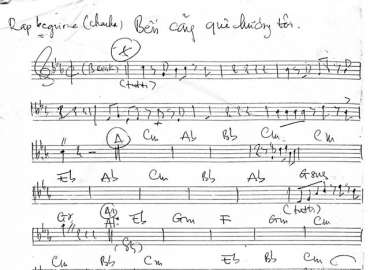 Rap beguine (chacha) Bến cảng quê hương tôi.
X
(Break)
(tutti)
A Cm Ab Bb Cm Cm
Eb Ab Cm Bb Ab Gsus
(tutti)
G7 A2 Eb Gm F Gm Cm
Cm Bb Cm Eb Bb Cm